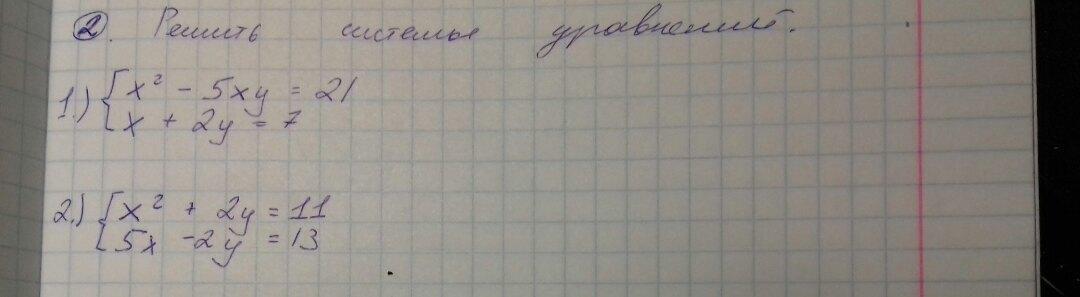 2. Решить системы уравнений.
1.) { x² - 5xy = 21
x + 2y = 7
2.) { x² + 2y = 11
5x - 2y = 13